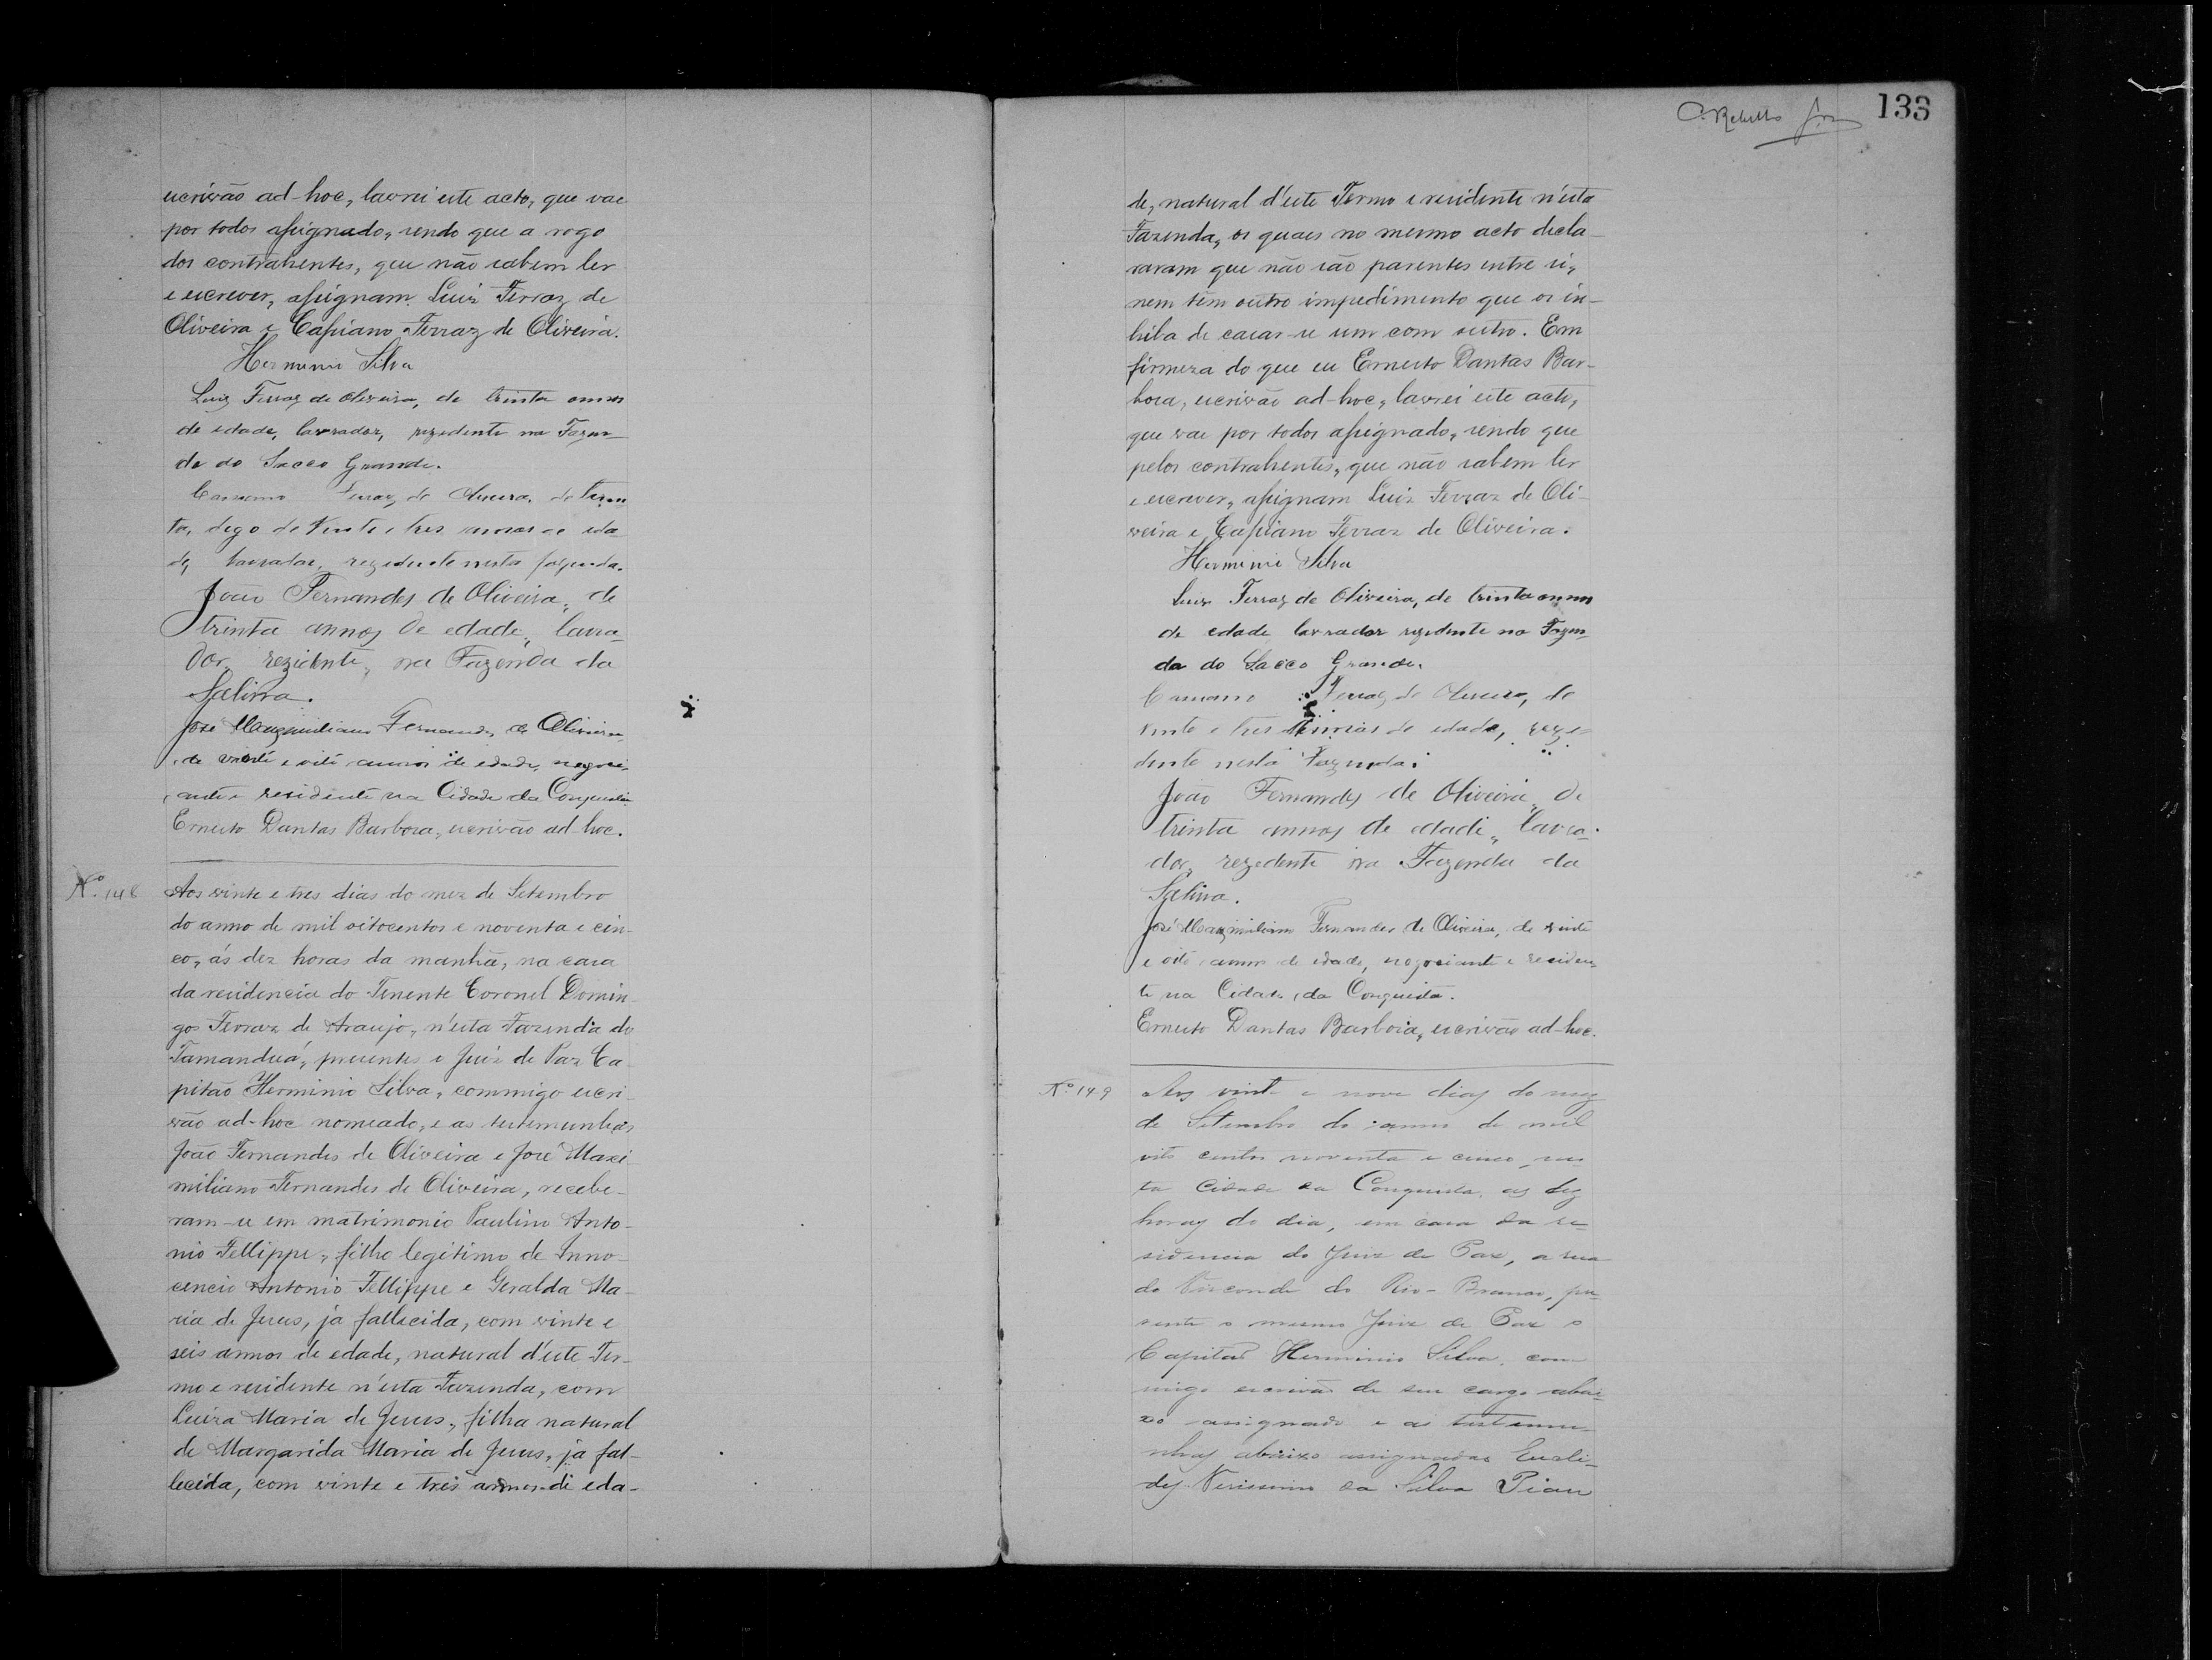 escrivão ad-hoc, lavrei este acto, que vae
por todos assignado, sendo que a rogo
dos contrahentes, que não sabem ler
e escrever, assignam Luiz Ferraz de
Oliveira e Cassiano Ferraz de Oliveira.
Herminio Silva
Luiz Ferraz de Oliveira, de trinta annos
de edade, lavrador, rezedente na Fazen-
da do Sacco Grande.
Cassiano Ferraz de Oliveira, de trin
ta, digo de vinte e tres annos de eda
de, lavrador, rezedente nesta fazenda.
João Fernandes de Oliveira, de
trinta annos de edade, lavra-
dor, rezidente, na Fazenda da
Salina.
José Maximiliano Fernandes de Oliveira,
de vinte e oito annos de edade, negoci-
ante e residente na Cidade da Conquista
Ernesto Dantas Barbosa, escrivão ad-hoc.
Nº. 148
Aos vinte e tres dias do mez de Setembro
do anno de mil oitocentos e noventa e cin-
co, ás dez horas da manhã, na casa
da residencia do Tenente Coronel Domin-
gos Ferraz de Araujo, n'esta Fazenda do
Tamanduá, presentes o Juiz de Paz Ca-
pitão Herminio Silva, commigo escri-
vão ad-hoc nomeado, e as testemunhas
João Fernandes de Oliveira e José Maxi-
miliano Fernandes de Oliveira, recebe-
ram-se em matrimonio Paulino Anto-
nio Fellippe, filho legitimo de Inno-
cencio Antonio Fellippe e Geralda Ma-
ria de Jesus, já fallecida, com vinte e
seis annos de edade, natural d'este Ter-
mo e residente n'esta Fazenda, com
Luiza Maria de Jesus, filha natural
de Margarida Maria de Jesus, já fal-
lecida, com vinte e tres annos de eda-
133
de, natural d'este Termo e residente n'esta
Fazenda, os quaes no mesmo acto decla-
raram que não são parentes entre si,
nem têm outro impedimento que os in-
hiba de casar-se um com outro. Em
firmeza do que eu Ernesto Dantas Bar-
bosa, escrivão ad-hoc, lavrei este acto,
que vae por todos assignado, sendo que
pelos contrahentes, que não sabem ler
e escrever, assignam Luiz Ferraz de Oli-
veira e Cassiano Ferraz de Oliveira.
Herminio Silva
Luiz Ferraz de Oliveira, de trinta annos
de edade lavrador rezedente na Fazen-
da do Sacco Grande.
Cassiano Ferraz de Oliveira, de
vinte e tres annos de edade, reze-
dente nesta Fazenda.
João Fernandes de Oliveira, de
trinta annos de edade, lavra-
dor, rezedente na Fazenda da
Salina.
José Maximiliano Fernandes de Oliveira, de vinte
e oito annos de edade, negociante e residen-
te na Cidade da Conquista.
Ernesto Dantas Barbosa, escrivão ad-hoc.
Nº 149
Aos vinte e nove dias do mez
de Setembro do anno de mil
oito centos noventa e cinco, nes-
ta Cidade da Conquista, as dez
horas do dia, em casa da re-
sidencia do Juiz de Paz, a rua
do Visconde do Rio-Branco, pre-
sente o mesmo Juiz de Paz o
Capitão Herminio Silva, com
migo escrivão de seu cargo abai-
xo assignado e as testemu-
nhas abaixo assignadas Eucli-
des Verissimo da Silva Pian